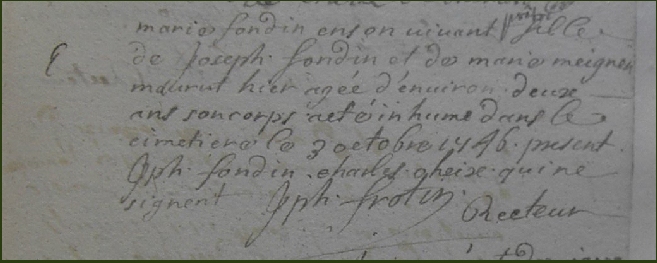 marie fondin en son vivant fille
de Joseph fondin et de marie meignen
mourut hier agée d'environ deux
ans son corps a eté inhumé dans le
cimetiere le 3 octobre 1746 present
Jph fondin charles gheixe qui ne
signent Jph frotin Recteur